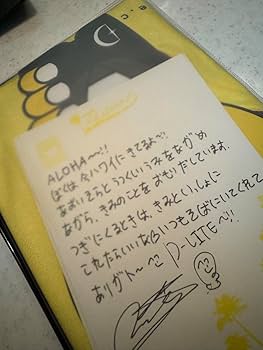 ALOHA〜!!
ぼくは今ハワイにきてるよ〜!!
あおいそらとうつくしいうみをながめ
ながら、きみのことをおもいだしています。
つぎにくるときは、きみといっしょに
これたらいいなぁ いつもそばにいてくれて
ありがト〜 D-LITE〜!!